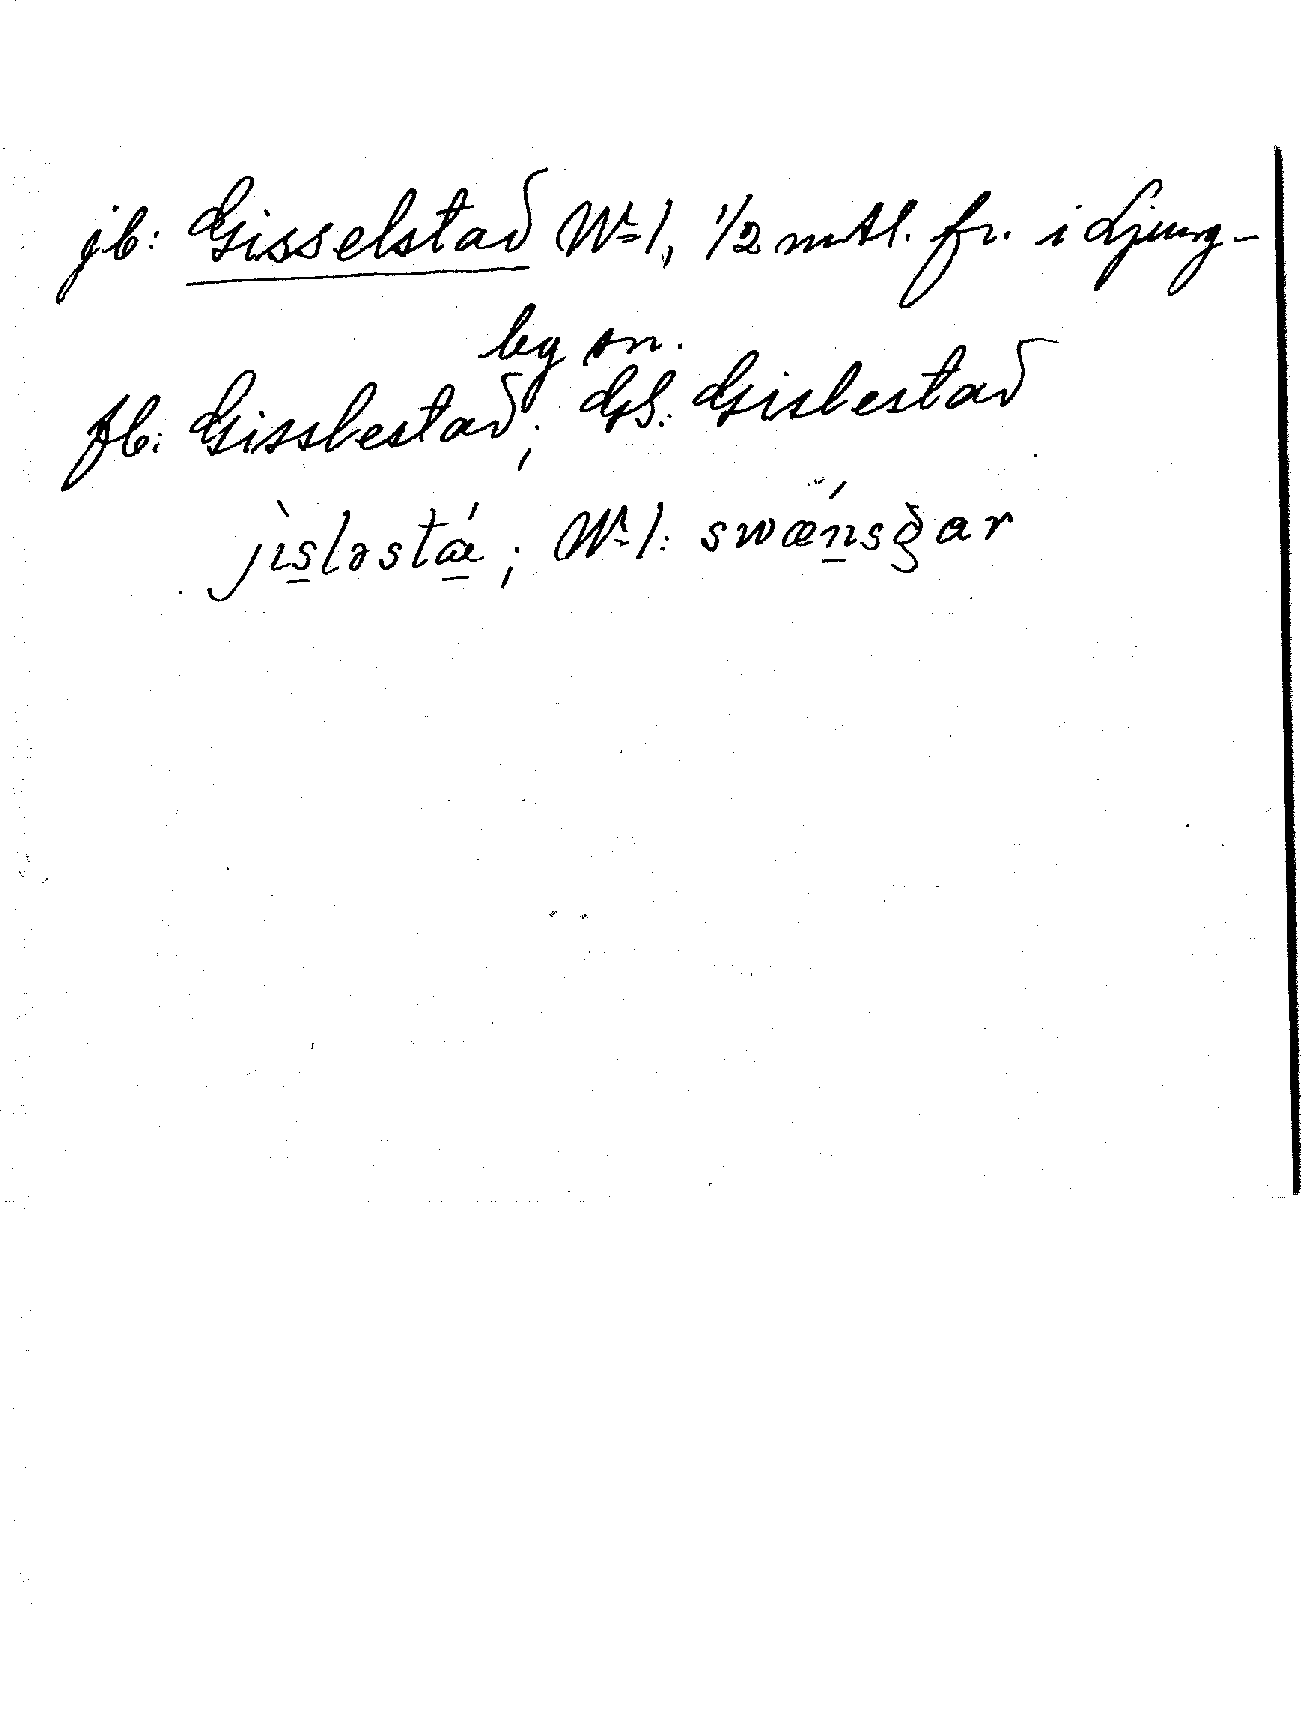 jb: Gisselstad No 1, 1/2 mtl. fr. i Ljung-
by sn.
fb: Gisslestad; GS: Gislestad
jìsləstá; No 1: swǽnsgar